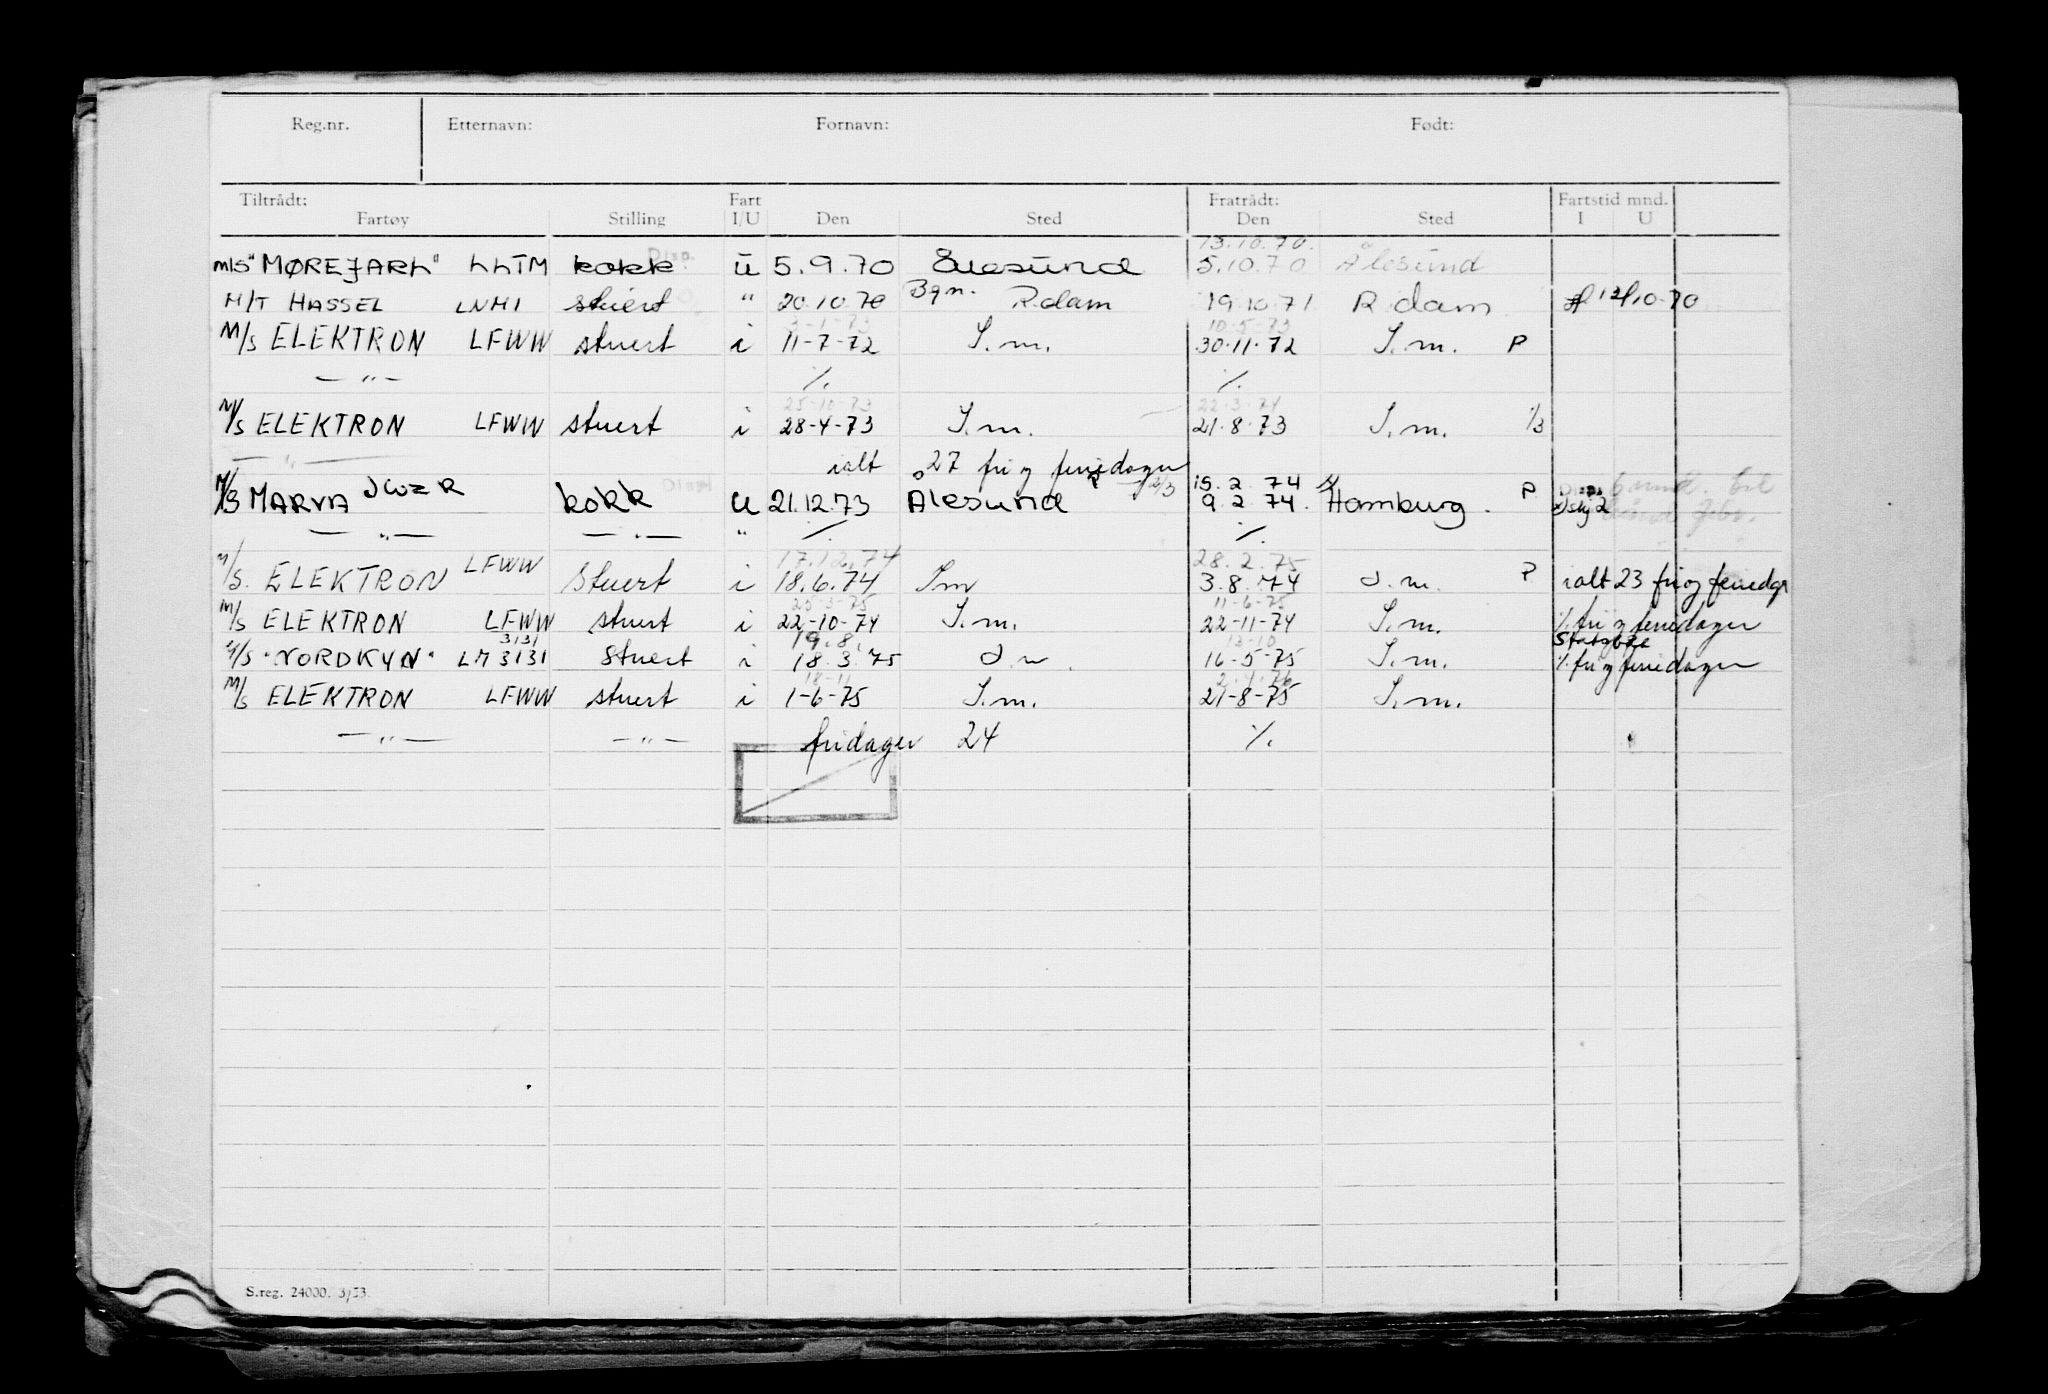 Reg.nr. Etternavn: Fornavn: Født:
Tiltrådt: Fart Fratrådt: Fartstid mnd.
Fartøy Stilling I/U Den Sted Den Sted I U
13.10.70.
M/S "MØREJARL" LLTM kokk Disp. u 5.9.70 Ålesund 5.10.70 Ålesund
M/T HASSEL LNMI stuert " 20.10.70 Bgn. R.dam 19.10.71 R.dam 12/10-70
3-1-73 10-5-73
M/S ELEKTRON LFWW stuert i 11-7-72 S.m. 30.11.72 S.m. P
— " — ·/. ·/.
25-10-73 22-3-74
M/S ELEKTRON LFWW stuert i 28-4-73 S.m. 21.8.73 S.m. 1/3
— " — ialt 27 fri og feriedager
15.2.74
M/S MARVA JWZR kokk Disp. U 21.12.73 Ålesund 9.2.74. Hamburg. P
— " — — " — " ·/. ·/.
17.12.74 28.2.75
M/S. ELEKTRON LFWW Stuert i 18.6.74 Sm 3.8.74 S.m. P ialt 23 fri og feriedgr
25-3-75 11-6-75
M/S ELEKTRON LFWW stuert i 22-10-74 S.m. 22-11-74 S.m. ·/. fri og feriedager
3131 19.8. 13-10
M/S "NORDKYN" LM 3131 Stuert i 18.3.75 S.m. 16-5-75 S.m. ·/. fri og feriedager
18-11 2-4-76
M/S ELEKTRON LFWW stuert i 1-6-75 S.m. 21-8-75 S.m.
— " — — " — fridager 24 ·/.
S.reg. 24000. 3/53.